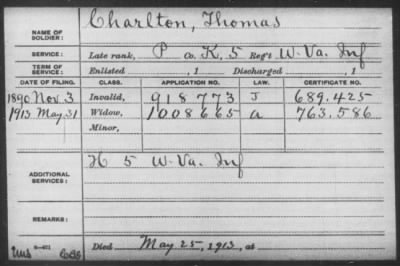 NAME OF SOLDIER: Charlton, Thomas
SERVICE: Late rank, P Co. K, 5 Reg't W. Va. Inf
TERM OF SERVICE: Enlisted , 1 Discharged , 1
DATE OF FILING. CLASS. APPLICATION NO. LAW. CERTIFICATE NO.
1890 Nov. 3 Invalid, 918773 J 689.425
1913 May 31 Widow, 1008665 a 763.586
Minor,
ADDITIONAL SERVICES: H 5 W. Va. Inf
REMARKS:
Died May 25, 1913, at